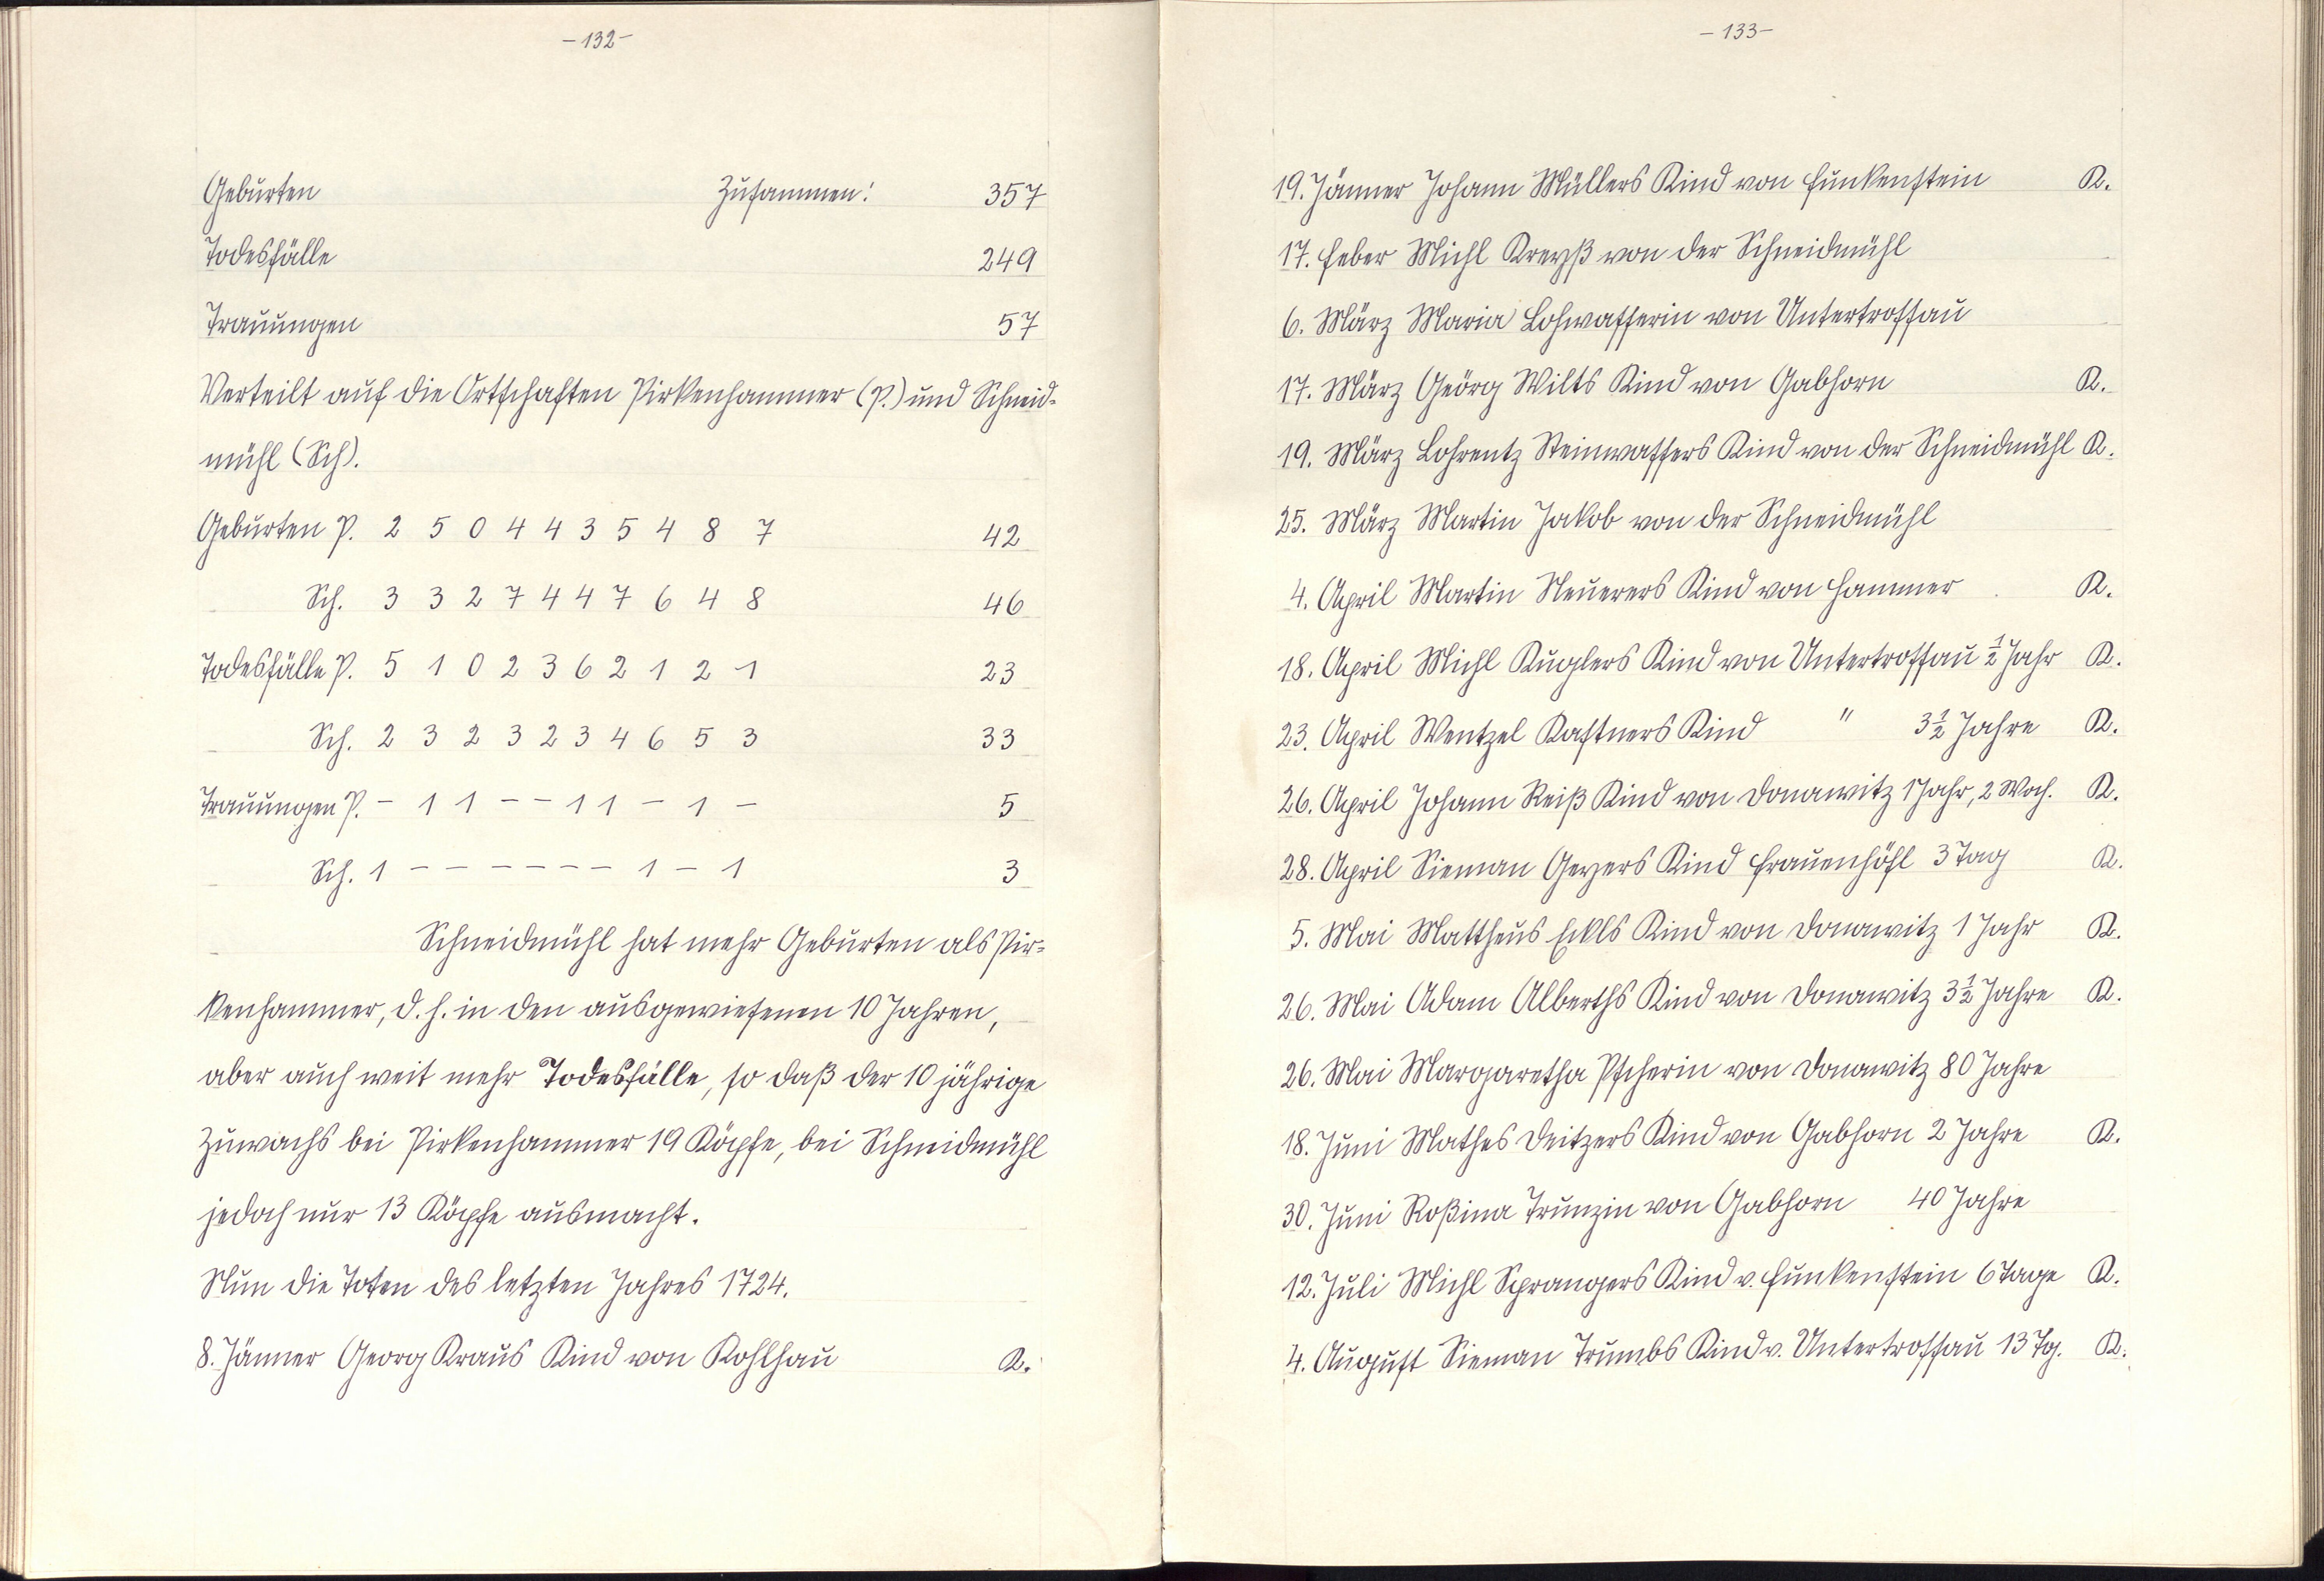 -132-
Geburten Zusammen: 357
Todesfälle 249
Trauungen 57
Verteilt auf die Ortschaften Pirkenhammer (P.) und Schneid-
mühl (Sch).
Geburten P. 2 5 0 4 4 3 5 4 8 7 42
Sch. 3 3 2 7 4 4 7 6 4 8 46
Todesfälle P. 5 1 0 2 3 6 2 1 2 1 23
Sch. 2 3 2 3 2 3 4 6 5 3 33
Trauungen P. - 1 1 - - 1 1 - 1 - 5
Sch. 1 - - - - - - 1 - 1 3
Schneidmühl hat mehr Geburten als Pir-
kenhammer, d. h. in den ausgewiesenen 10 Jahren,
aber auch weit mehr Todesfälle, so daß der 10 jährige
Zuwachs bei Pirkenhammer 19 Köpfe, bei Schneidmühl
jedoch nur 13 Köpfe ausmacht.
Nun die Toten des letzten Jahres 1724.
8. Jänner Georg Kraus Kind von Kohlhau K.
-133-
19. Jänner Johann Müllers Kind von Funkenstein K.
17. Feber Michl Kreyß von der Schneidmühl
6. März Maria Lohwasserin von Untertrossau
17. März Geörg Wilts Kind von Gabhorn K.
19. März Lohrentz Steinwassers Kind von der Schneidmühl K.
25. März Martin Jakob von der Schneidmühl
4. April Martin Neuerers Kind von Hammer K.
18. April Michl Kuglers Kind von Untertrossau ½ Jahr K.
23. April Wentzel Kastners Kind " 3½ Jahre K.
26. April Johann Reiß Kind von Donawitz 1 Jahr, 2 Woch. K.
28. April Sieman Geyers Kind Frauenhöfl 3 Tag K.
5. Mai Mattheus Eckls Kind von Donawitz 1 Jahr K.
26. Mai Adam Alberths Kind von Donawitz 3½ Jahre K.
26. Mai Margaretha von Donawitz 80 Jahre
18. Juni Mathes Deitzers Kind von Gabhorn 2 Jahre K.
30. Juni Roßina Trunzin von Gabhorn 40 Jahre
12. Juli Michl Sprangers Kind v. Funkenstein 6 Tage K.
4. August Sieman Trumbs Kind v. Untertrossau 13 Tg. K.